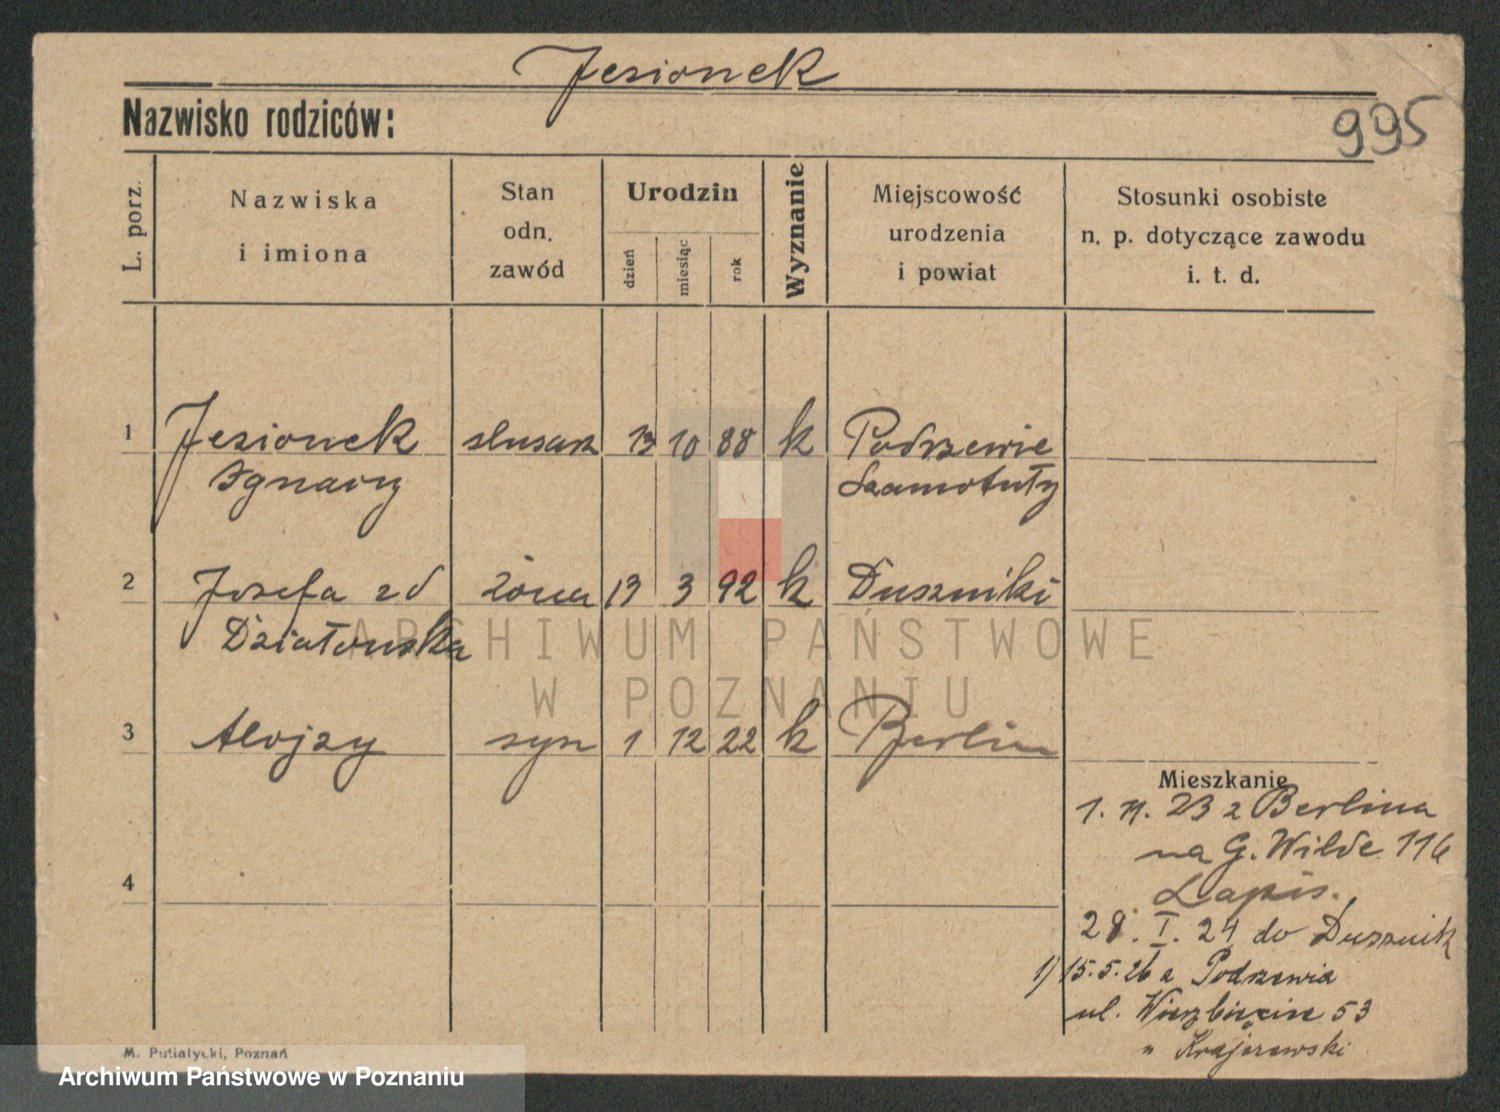 Jesionek
995
Nazwisko rodziców:
L. porz.
Nazwiska
i imiona
Stan
odn.
zawód
Urodzin
dzień
miesiąc
rok
Wyznanie
Miejscowość
urodzenia
i powiat
Stosunki osobiste
n. p. dotyczące zawodu
i. t. d.
1 Jesionek slusarz 13 10 88 k Podrzewie
Ignacy Szamotuły
2 Józefa zd żona 13 3 92 k Duszniki
Działowska
3 Alojzy syn 1 12 22 k Berlin
4
Mieszkanie
1. 11. 23 z Berlina
na G. Wilde 116
28. I. 24 do Dusznik
1) 15. 5. 26 z Podrzewia
ul. 53
" Krajewski
M. Putiatycki, Poznań
ARCHIWUM PAŃSTWOWE
W POZNANIU
Archiwum Państwowe w Poznaniu